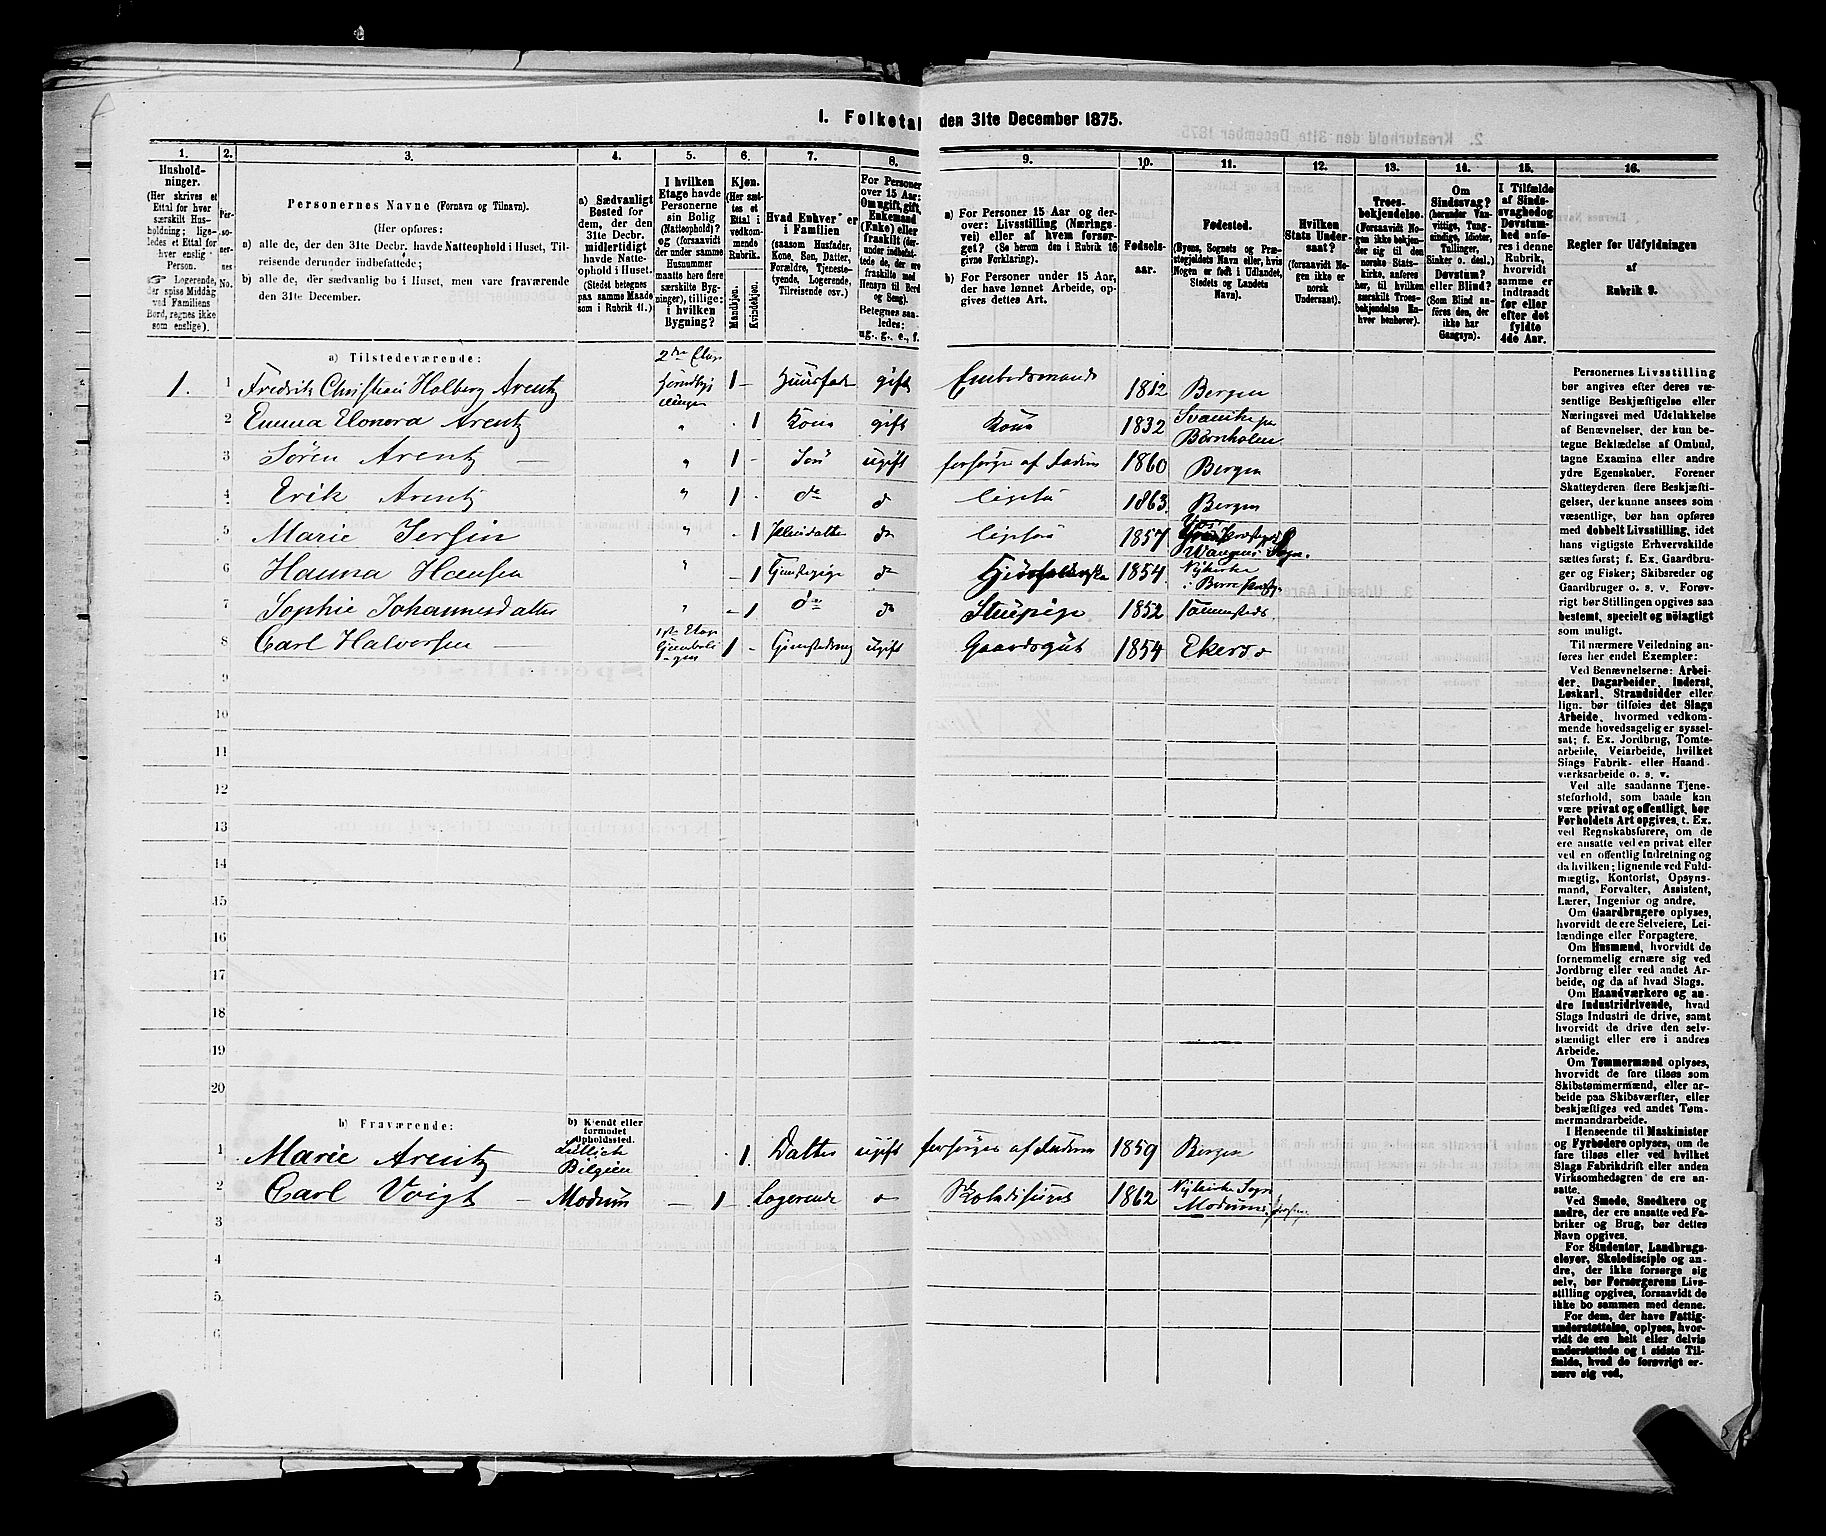 1. Folketal den 31te December 1875.
1. 2. 3. 4. 5. 6. 7. 8. 9. 10. 11. 12. 13. 14. 15. 16.
Hushold-
ninger.
(Her skrives et
Ettal for hver
særskilt Hus-
holdning; lige-
ledes et Ettal for
hver enslig
Person.
☞ Logerende,
der spise Middag
ved Familiens
Bord, regnes ikke
som enslige).
Per-
so-
ner-
nes
No.
Personernes Navne (Fornavn og Tilnavn).
(Her opføres:
a) alle de, der den 31te Decbr. havde Natteophold i Huset, Til-
reisende derunder indbefattede;
b) alle de, der sædvanlig bo i Huset, men vare fraværende
den 31te December.
a) Sædvanligt
Bosted for
dem, der den
31te Decbr.
midlertidigt
havde Natte-
ophold i Huset.
(Stedet betegnes
paa samme Maade
som i Rubrik 11.)
I hvilken
Etage havde
Personerne
sin Bolig
(Natteophold)?
og (forsaavidt
der under samme
Husnummer
maatte høre flere
særskilte Byg-
ninger), tillige:
i hvilken
Bygning?
Kjøn.
(Her sæt-
tes et
Ettal i
vedkom-
mende
Rubrik.
Mandkjøn.
Kvindekjøn.
Hvad Enhver er
i Familien
(saasom Husfader,
Kone, Søn, Datter,
Forældre, Tjeneste-
tyende, Logerende,
Tilreisende osv.)
For Personer
over 15 Aar:
Om ugift, gift,
Enkemand
(Enke) eller
fraskilt
Hensyn til Bord
og Seng).
Betegnes saa-
ledes:
ug., g., e., f.
a) For Personer 15 Aar og der-
over: Livsstilling (Nærings-
vei) eller af hvem forsør-
get? (Se herom den i Rubrik 16
givne Forklaring).
b) For Personer under 15 Aar,
der have lønnet Arbeide, op-
gives dettes Art.
Fødsels-
aar.
Fødested.
(Byens, Sognets og Præ-
stegjeldets Navn eller, hvis
Nogen er født i Udlandet,
Stedets og Landets
Navn).
Hvilken
Stats Under-
saat?
(forsaavidt No-
gen ikke er
norsk
Undersaat).
Troes-
bekjendelse.
(Forsaavidt No-
gen ikke bekjen-
der sig til den
norske Stats-
kirke, anføres
her, til hvilken
særskilt Troes-
bekjendelse En-
hver henhører).
Om
Sindssvag?
(herunder Van-
vittige, Tung-
sindige, Idioter,
Tullinger,
Sinker o. desl.)
Døvstum?
eller Blind?
(Som Blind an-
føres den, der
ikke har
Gangsyn).
I Tilfælde
af Sinds-
svaghed og
Døvstum-
hed anfø-
res i denne
Rubrik,
hvorvidt
samme er
indtraadt
før eller
efter det
fyldte
4de Aar.
Regler for Udfyldningen
af
Rubrik 9.
a) Tilstedeværende:
1. 1 Fredrik Christian Holberg Arentz 2den Etage 1 - Huusfader gift Embedsmand 1812 Bergen
2 Emma Elonora Arentz " . 1 Kone gift Kone 1832 Svanike paa
Bornholm
3 Søren Arentz — " 1 - Søn ugift forsørges af Faderen 1860 Bergen
4 Erik Arentz " 1 - do d ligesaa 1863 Bergen
5 Marie Jersin " - 1 Pleiedatter do ligesaa 1857
Wangens Sogn.
6 Hanna Hansen " - 1 Tjenstepige do 1854 Nykirke
i Borre
7 Sophie Johannesdatter " - 1 do do Stuepige 1852
8 Carl Halvorsen — 1ste Etage 1 - Tjenstedreng ugift Gaardsgut 1854 Ekersø
9
10
11
12
13
14
15
16
17
18
19
20
b) Fraværende:
b) Kjendt eller
formodet
Opholdssted.
1 Marie Arentz Lüttich
Belgien . 1 Datter ugift forsørges af Faderen 1859 Bergen
2 Carl Voigt — Modum — 1 - Logerende d 1862 Nykirke Sogn
Modums
3
4
5
6
Personernes Livsstilling
bør angives efter deres væ-
sentlige Beskjæftigelse eller
Næringsvei med Udelukkelse
af Benævnelser, der kun be-
tegne Beklædelse af Ombud,
tagne Examina eller andre
ydre Egenskaber. Forener
Skatteyderen flere Beskjæfti-
gelser, der kunne ansees som
væsentlige, bør han opføres
med dobbelt Livsstilling, idet
hans vigtigste Erhvervskilde
sættes først; f. Ex. Gaardbru-
ger og Fisker; Skibsreder og
Gaardbruger o. s. v. Forøv-
rigt bør Stillingen opgives saa
bestemt, specielt og nøiagtigt
som muligt.
Til nærmere Veiledning an-
føres her endel Exempler:
Ved Benævnelserne: Arbei-
der, Dagarbeider, Inderst,
Løskarl, Strandsidder eller
lign. bør tilføies det Slags
Arbeide, hvormed vedkom-
mende hovedsagelig er syssel-
sat; f. Ex. Jordbrug, Tomte-
arbeide, Veiarbeide, hvilket
Slags Fabrik- eller Haand-
værksarbeide o. s. v.
Ved alle saadanne Tjene-
steforhold, som baade kan
være privat og offentligt, bør
Forholdets Art opgives, t. Ex.
ved Regnskabsførere, om de
ere ansatte ved en privat eller
ved en offentlig Indretning og
da hvilken; lignende ved Fuld-
mægtig, Kontorist, Opsyns-
mand, Forvalter, Assistent,
Lærer, Ingeniør og andre.
Om Gaardbrugere oplyses,
hvorvidt de ere Selveiere, Lei-
lændinge eller Forpagtere.
Om Husmænd, hvorvidt de
fornemmelig ernære sig ved
Jordbrug eller ved andet Ar-
beide, og da af hvad Slags.
Om Haandværkere og an-
dre Industridrivende, hvad
Slags Industri de drive, samt
hvorvidt de drive den selv-
stændigt eller ere i andres
Arbeide.
Om Tømmermænd oplyses,
hvorvidt de fare tilsøs som
Skibstømmermænd, eller ar-
beide paa Skibsværfter, eller
beskjæftiges ved andet Tøm-
mermandsarbeide.
I Henseende til Maskinister
og Fyrbødere oplyses, om de
fare tilsøs eller ved hvilket
Slags Fabrikdrift eller anden
Virksomhedsgren de ere an-
satte.
Ved Smede, Snedkere og
andre, der ere ansatte ved Fa-
briker og Brug, bør dettes
Navn opgives.
For Studenter, Landbrugs-
elever, Skoledisciple og an-
dre, der ikke forsørge sig
selv, bør Forsørgerens Livs-
stilling opgives, forsaavidt de
ikke bo sammen med denne.
For dem, der have Fattig-
understøttelse, oplyses, hvor-
vidt de ere helt eller delvis
understøttede og i sidste Til-
fælde, hvad de forøvrigt er-
nære sig ved.